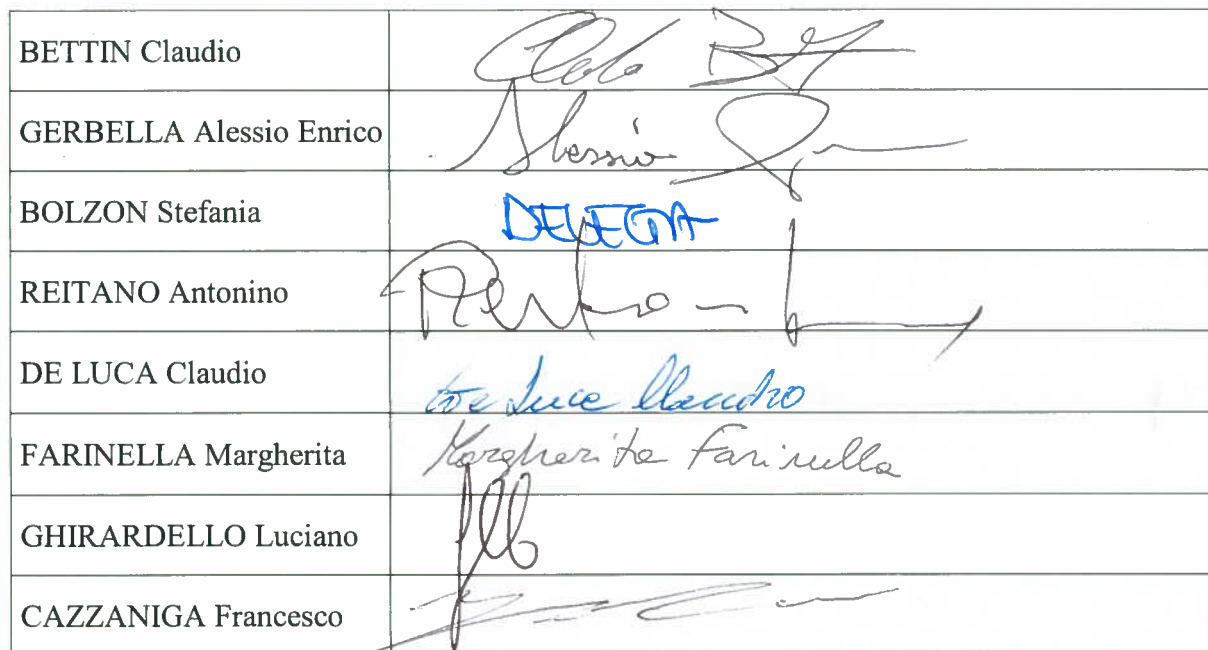 BETTIN Claudio
GERBELLA Alessio Enrico Alessio
BOLZON Stefania DELEGA
REITANO Antonino
DE LUCA Claudio De Luca Claudio
FARINELLA Margherita Margherita Farinella
GHIRARDELLO Luciano
CAZZANIGA Francesco